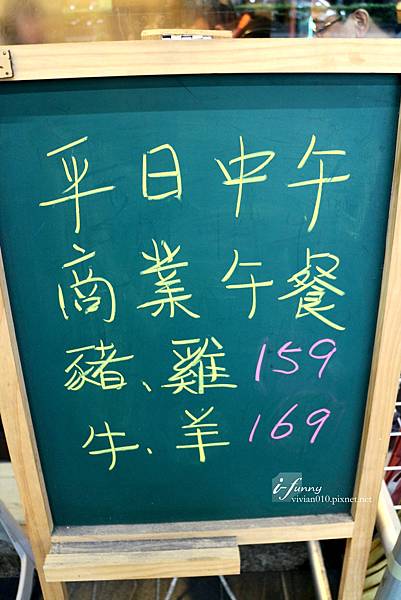 平日中午
商業午餐
豬、雞 159
牛、羊 169
i-funny
vivian010.pixnet.net